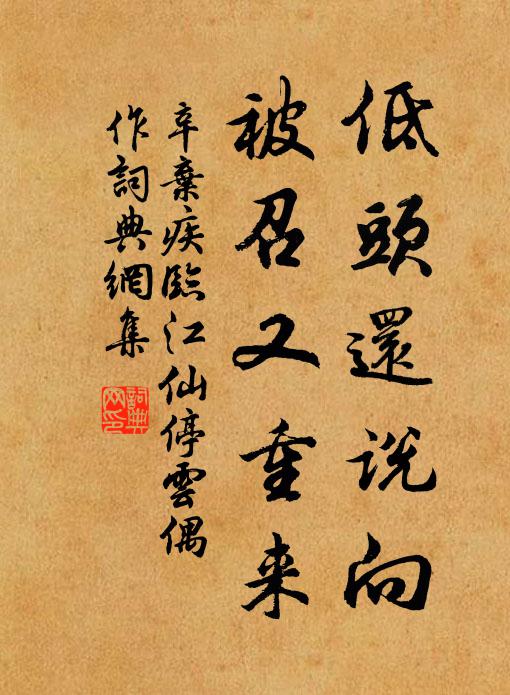 低頭還説向
被召又重来
辛棄疾臨江仙停雲偶
作詞典網集
詞典
网印